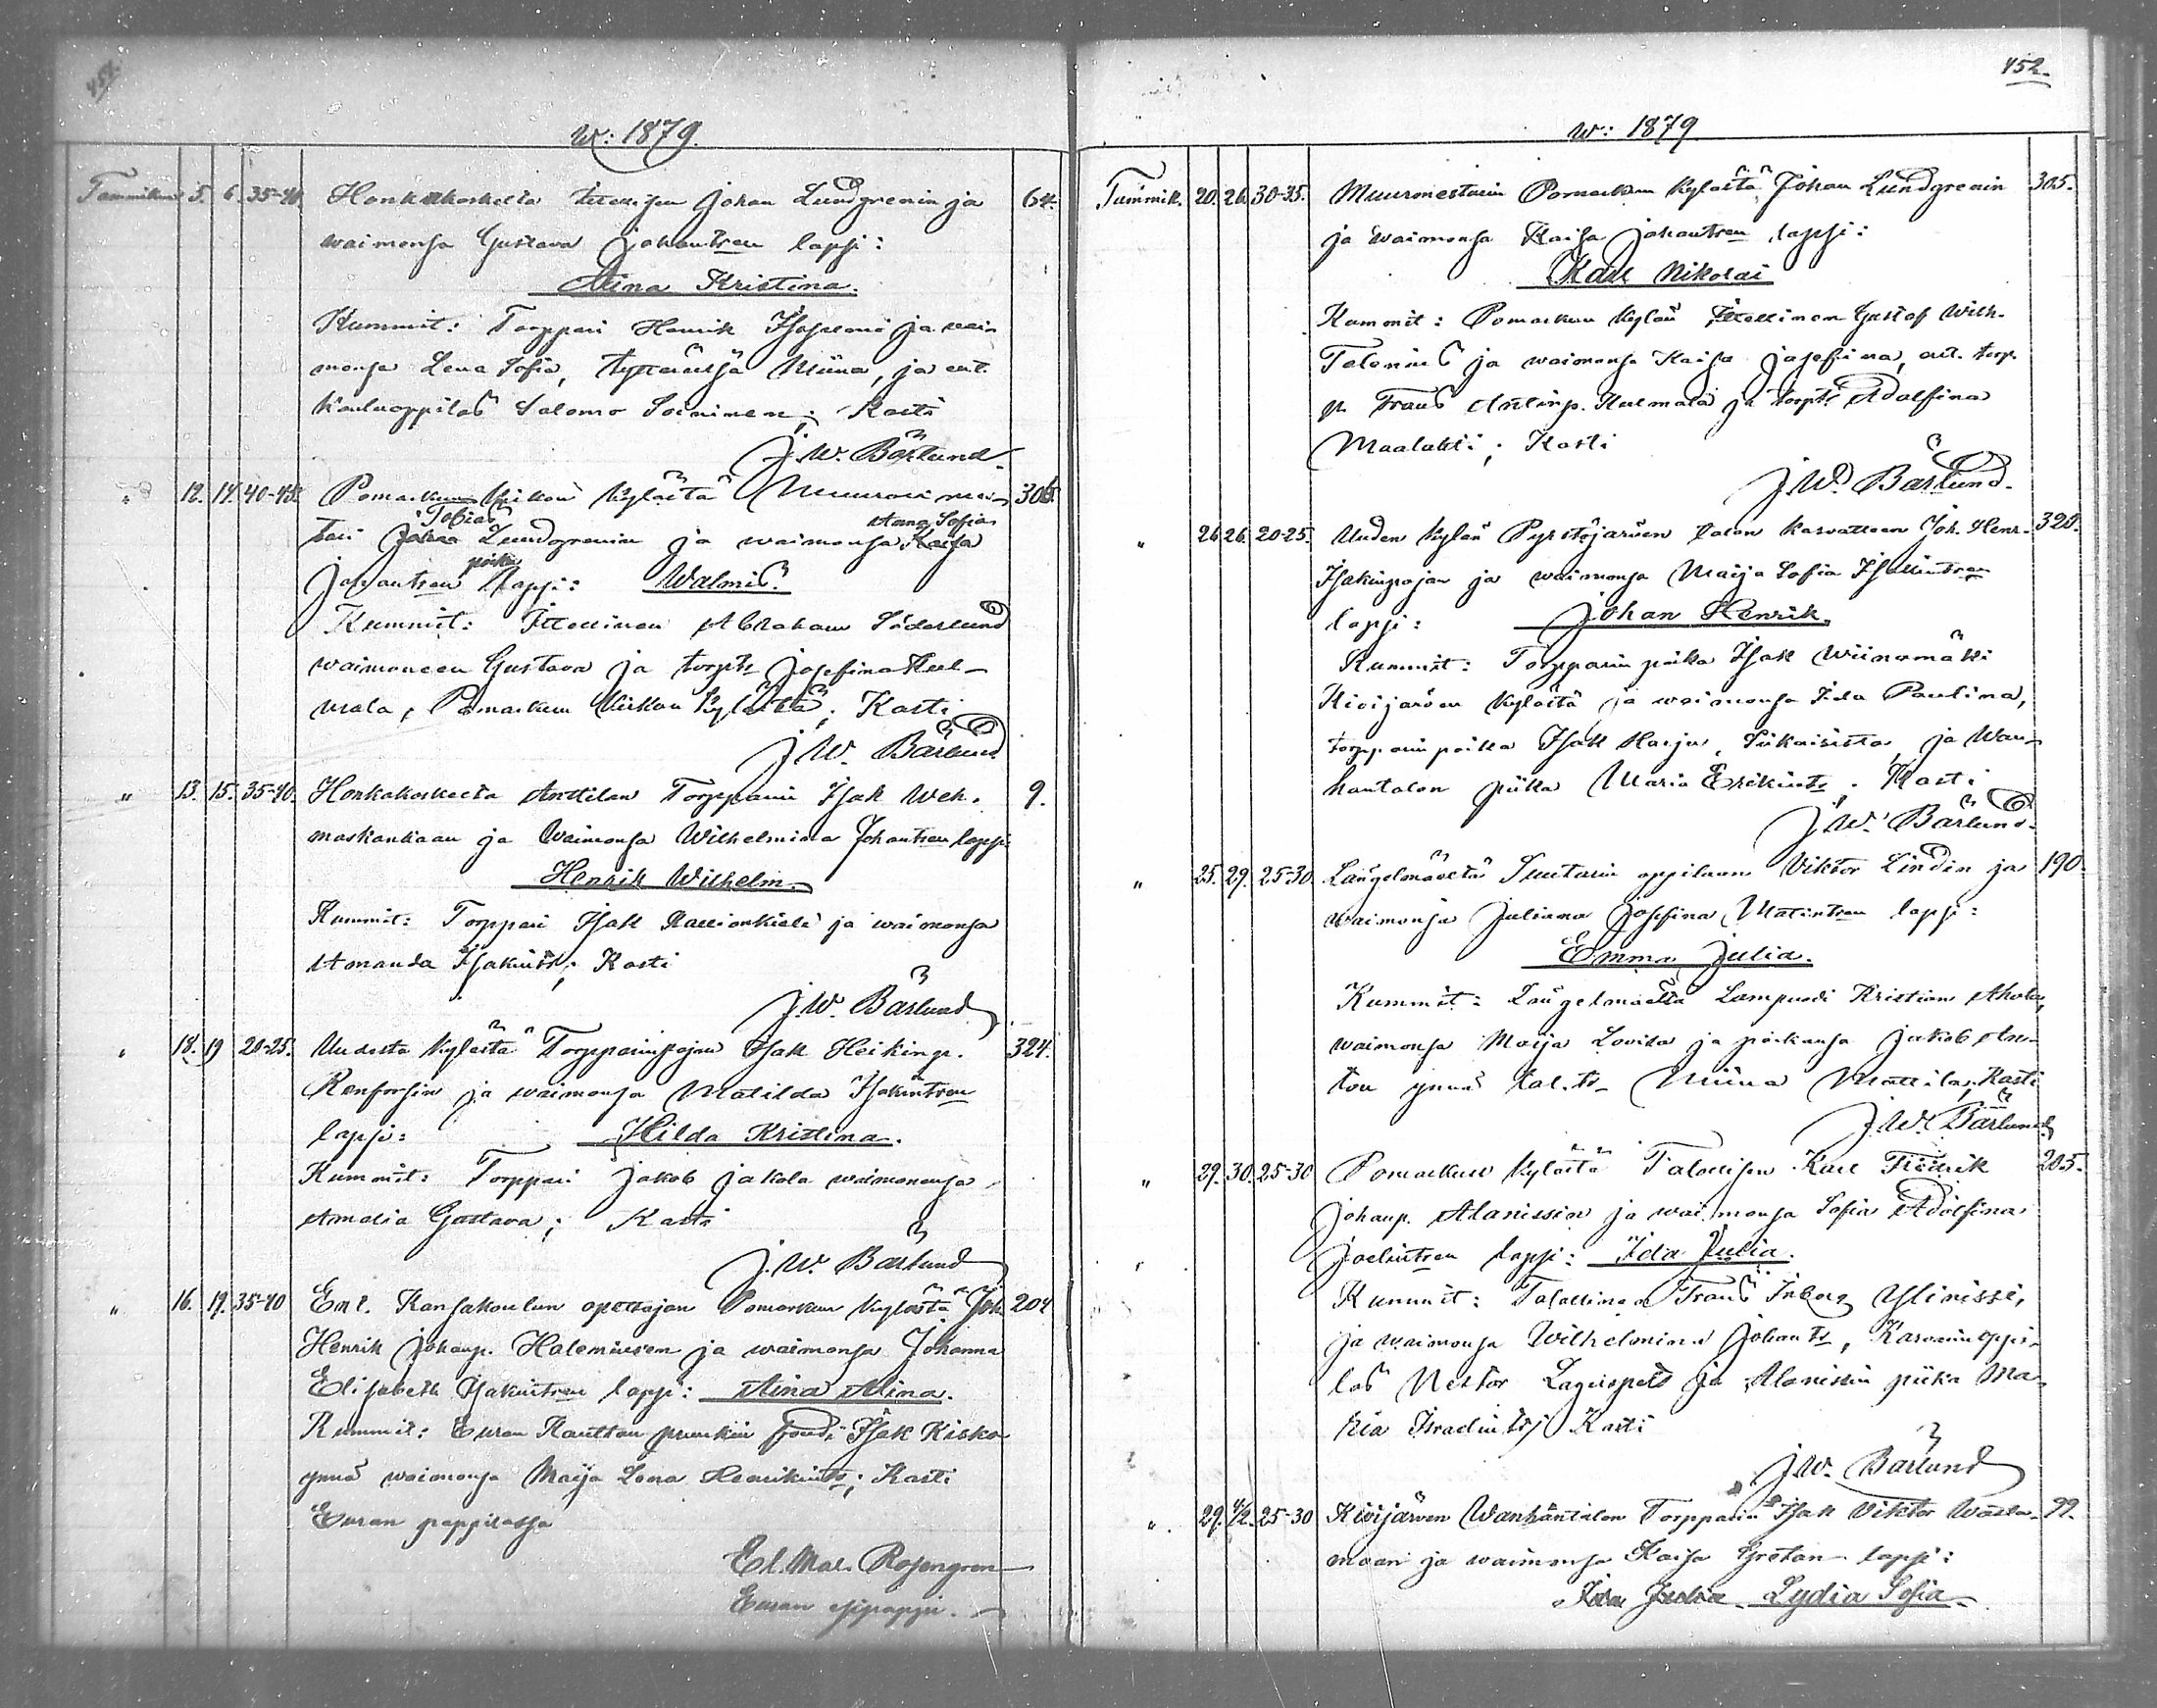 451.
W: 1879.
Tammikuu 5. 6. 35-40. Honkakoskelta itellisen Johan Lundgrenin ja 64.
waimonsa Gustava Johantren lapsi:
Aina Kristina.
Kummit: Torppari Henrik ja wai-
monsa Lena Sofia, Miina, ja ent.
kouluoppilas Salomo Soininen; Kasti
J. W. Bärlund
" 12. 14. 40-45. Pomarkun Kirkon kylästä Muurari mes- 306.
Tobias Anna Sofia
tari Johan Lundgrenin ja waimonsa Kaisa
poika
Johantren lapsi: Walmis.
Kummit: Itsellinen Abraham Söderlund
waimoneen Gustava ja torpts Josefina Kul-
mala, Pomarkun Kirkon kylästä; Kasti
J. W. Bärlund
" 13. 15. 35-40. Honkakoskelta Anttilan Torpparin Isak Weh- 9.
maskankaan ja Waimonsa Wilhelmina Johantren lapsi
Henrik Wilhelm.
Kummit: Torppari Isak Kallionkieli ja waimonsa
Amanda Isakints; Kasti
J. W. Bärlund
" 18. 19 20-25. Uudesta kylästä Torpparinpojan Isak Heikinp. 324.
Renforsin ja waimonsa Matilda Isakintren
lapsi: Hilda Kristina.
Kummit: Torppari Jakob Jakola waimonensa
Amalia Gustava; Kasti
J. W. Bärlund
" 16. 19. 35-40 Ent. Kansakoulun opettajan Pomarkun kylästä Joh. 204
Henrik Johanp. Haleniusen ja waimonsa Johanna
Elisabeth Isakintren lapsi: Aina Alina.
Kummit: Euran Kauttan pruukin Isak Kisko
ynnä waimonsa Maija Lena Henrikints; Kasti
Euran pappilassa
El. Mat. Rosengren
Euran
452.
W: 1879
Tammik. 20. 26. 30-35. Muurmestarin Pomarkun kylästä Johan Lundgrenin 305.
ja waimonsa Kaisa Johantren lapsi:
Karl Nikolai
Kummit: Pomarkun kylän Itsellinen Gustaf Wilh.
Telenius ja waimonsa Kaisa Josefina, ent. torp.
p. Frans Antinp. Kulmala ja torpts Adolfina
Maalahti; Kasti
J. W. Bärlund.
" 26 26. 20-25. Uuden kylän Pyrstöjärwen talon kaswatteen Joh. Henr. 320.
Isakinpojan ja waimonsa Maija Sofia Isakintren
lapsi: Johan Henrik.
Kummit: Torpparin poika Isak Wiinamäki
Kiwijärwen kylästä ja waimonsa Ida Paulina,
torpparin poika Isak Harju, Siikaisista, ja Wan-
hantalon piika Maria Erikints; Kasti
J. W. Bärlund.
" 25. 29. 25-30 Längelmäeltä Suutarin oppilaan Viktor Lindin ja 190.
waimonsa Juliana Josefina Matintren lapsi:
Emma Julia.
Kummit: Längelmäeltä Lampuodi Kristian Ahola,
waimonsa Maija Lovisa ja poikansa Jakob An-
ton ynnä tal. ts. Miina Mattila; Kasti
J. W. Bärlund.
" 29. 30. 25-30 Pomarkun kylästä Talollisen Karl Fredrik 205.
Johanp. Alanissin ja waimonsa Sofia Adolfina
Joelintren lapsi: Ida Julia.
Kummit: Talollinen Frans Inberg Ylinissi,
ja waimonsa Wilhelmina Johants, Karwarin oppi-
las Nestor Lagerspets ja Alanissin piika Ma-
ria Israelints; Kasti
J. W. Bärlund
" 29. 4/2. 25-30 Kiwijärwen Wanhantalon Torpparin Isak Viktor Wästa- 99.
maan ja waimonsa Kaisa Gretan lapsi:
Ida Julia Lydia Sofia